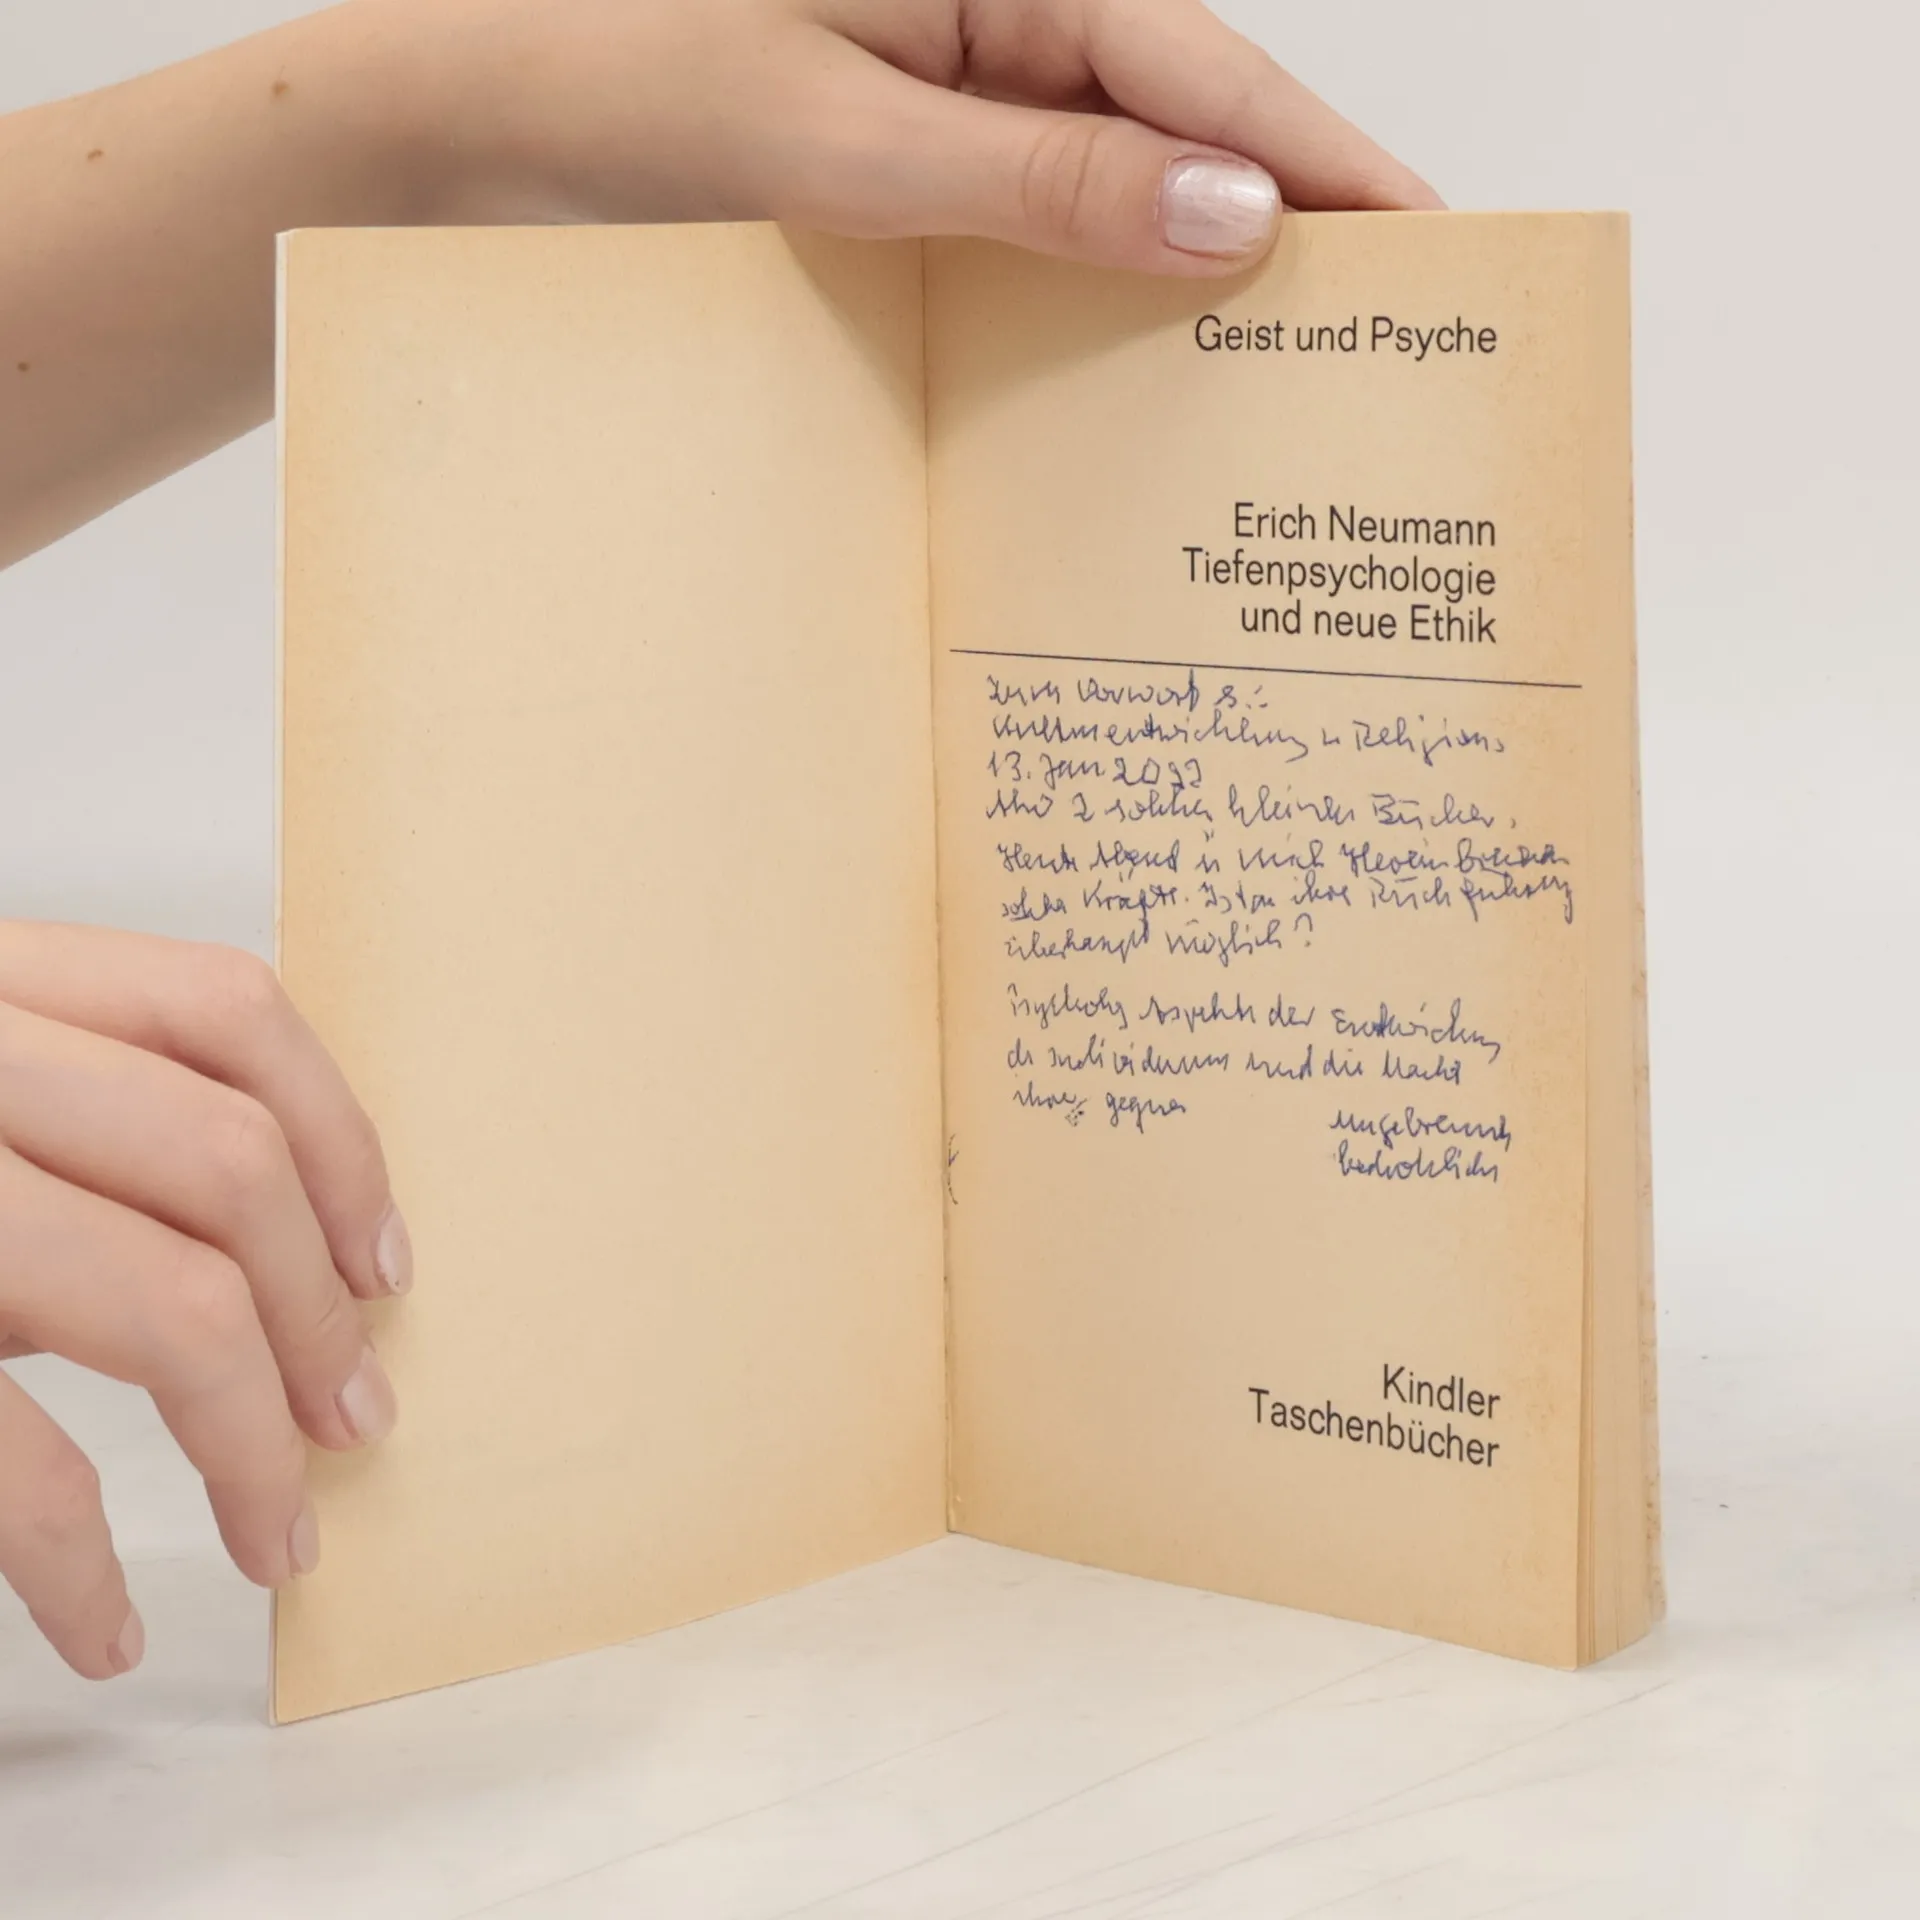 Geist und Psyche
Erich Neumann
Tiefenpsychologie
und neue Ethik
Zum Vorwort s.:
Kulturentwicklung u Religion
13. Jan
2 solcher kleiner Bücher.
Heute Abend ü mich
solcher Kräfte. Ist ihre Rückführung
überhaupt möglich?
Psycholog Aspekte der Entwicklung
des Individuums und die Macht
ihrer gegner
ungebremst
bedrohlich
Kindler
Taschenbücher